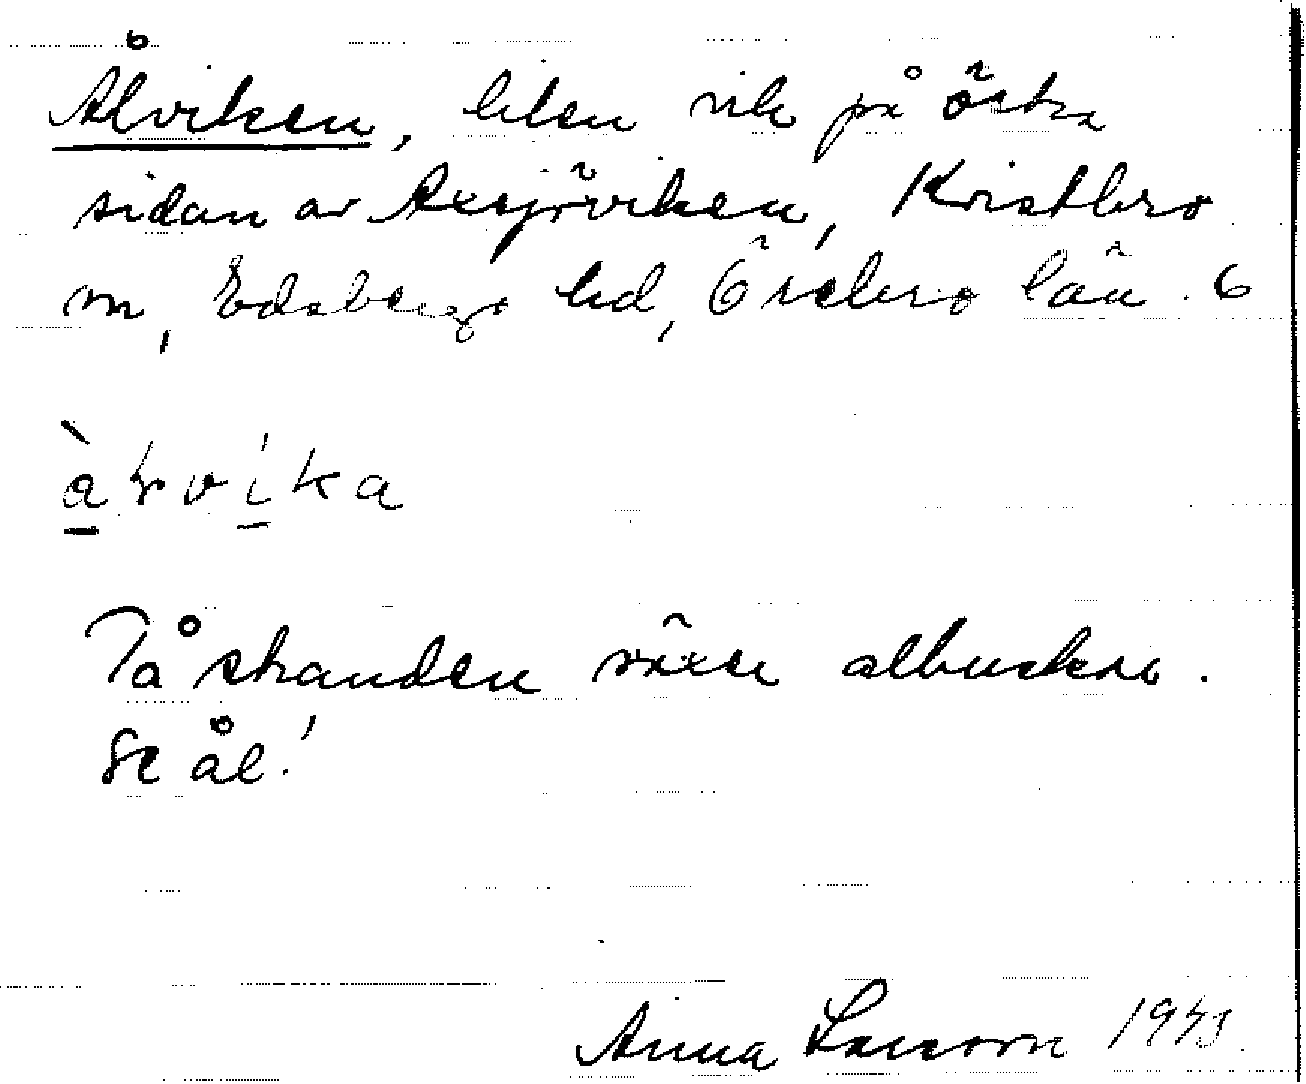 Ålviken, liten vik på östra
sidan av Axsjöviken, Kvistbro
sn, Edsbergs hd, Örebro län. 6
På stranden växer albuskar.
Se ål!
Anna Larsson